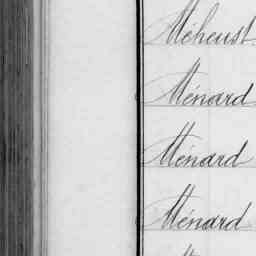 Méheust
Ménard
Ménard
Ménard